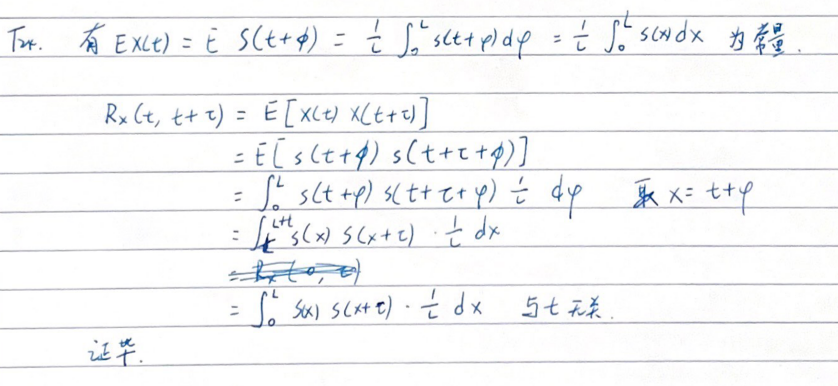 T24. 有 EX(t) = E S(t+φ) = 1/L ∫₀ᴸ s(t+φ)dφ = 1/L ∫₀ᴸ s(x)dx 为常量.
Rx(t, t+τ) = E[X(t) X(t+τ)]
= E[s(t+φ) s(t+τ+φ)]
= ∫₀ᴸ s(t+φ) s(t+τ+φ) 1/L dφ 取 x = t+φ
= ∫ₜᴸ⁺ᵗ s(x) s(x+τ) · 1/L dx
= ∫₀ᴸ s(x) s(x+τ) · 1/L dx 与t无关.
证毕.